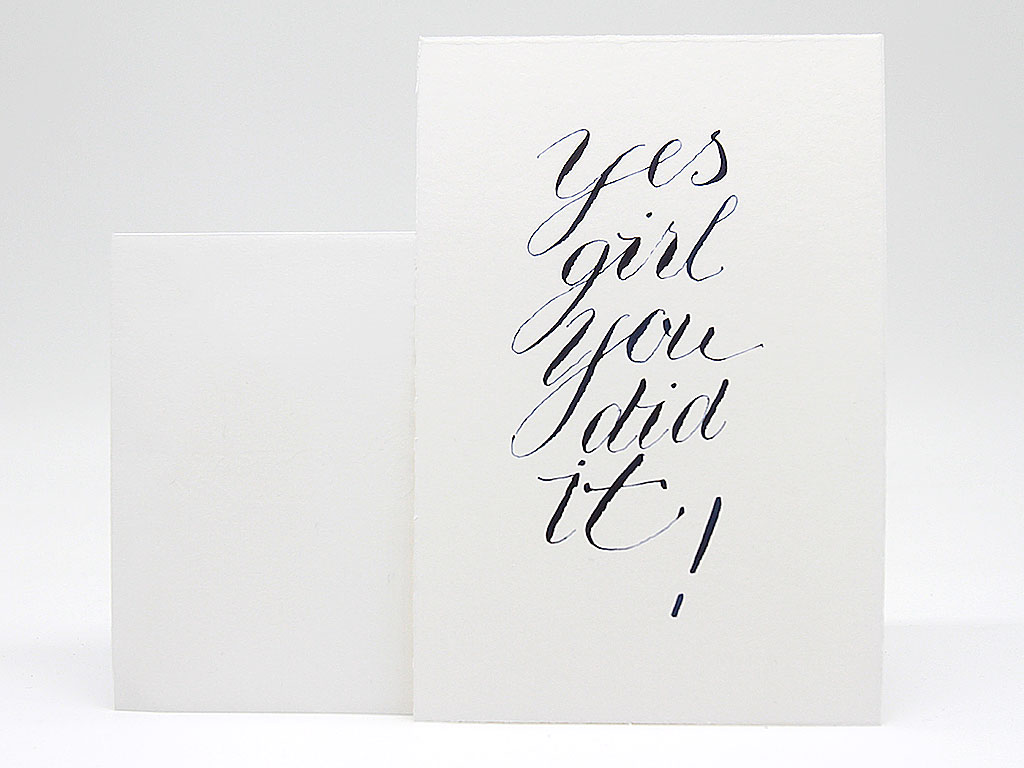 yes
girl
you
did
it!